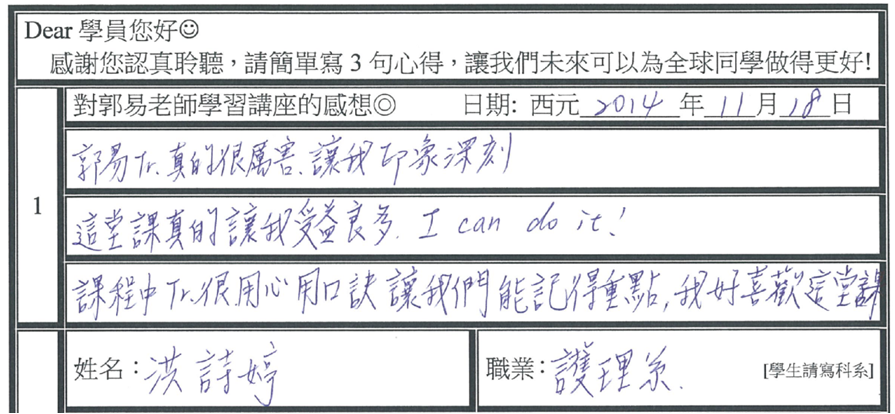 Dear 學員您好☺
感謝您認真聆聽，請簡單寫 3 句心得，讓我們未來可以為全球同學做得更好!
對郭易老師學習講座的感想◎ 日期: 西元 2014 年 11 月 18 日
1
郭易Tr.真的很厲害、讓我印象深刻
這堂課真的讓我受益良多. I can do it!
課程中Tr.很用心用口訣讓我們能記得重點,我好喜歡這堂課
姓名：洪詩婷 職業：護理系. [學生請寫科系]